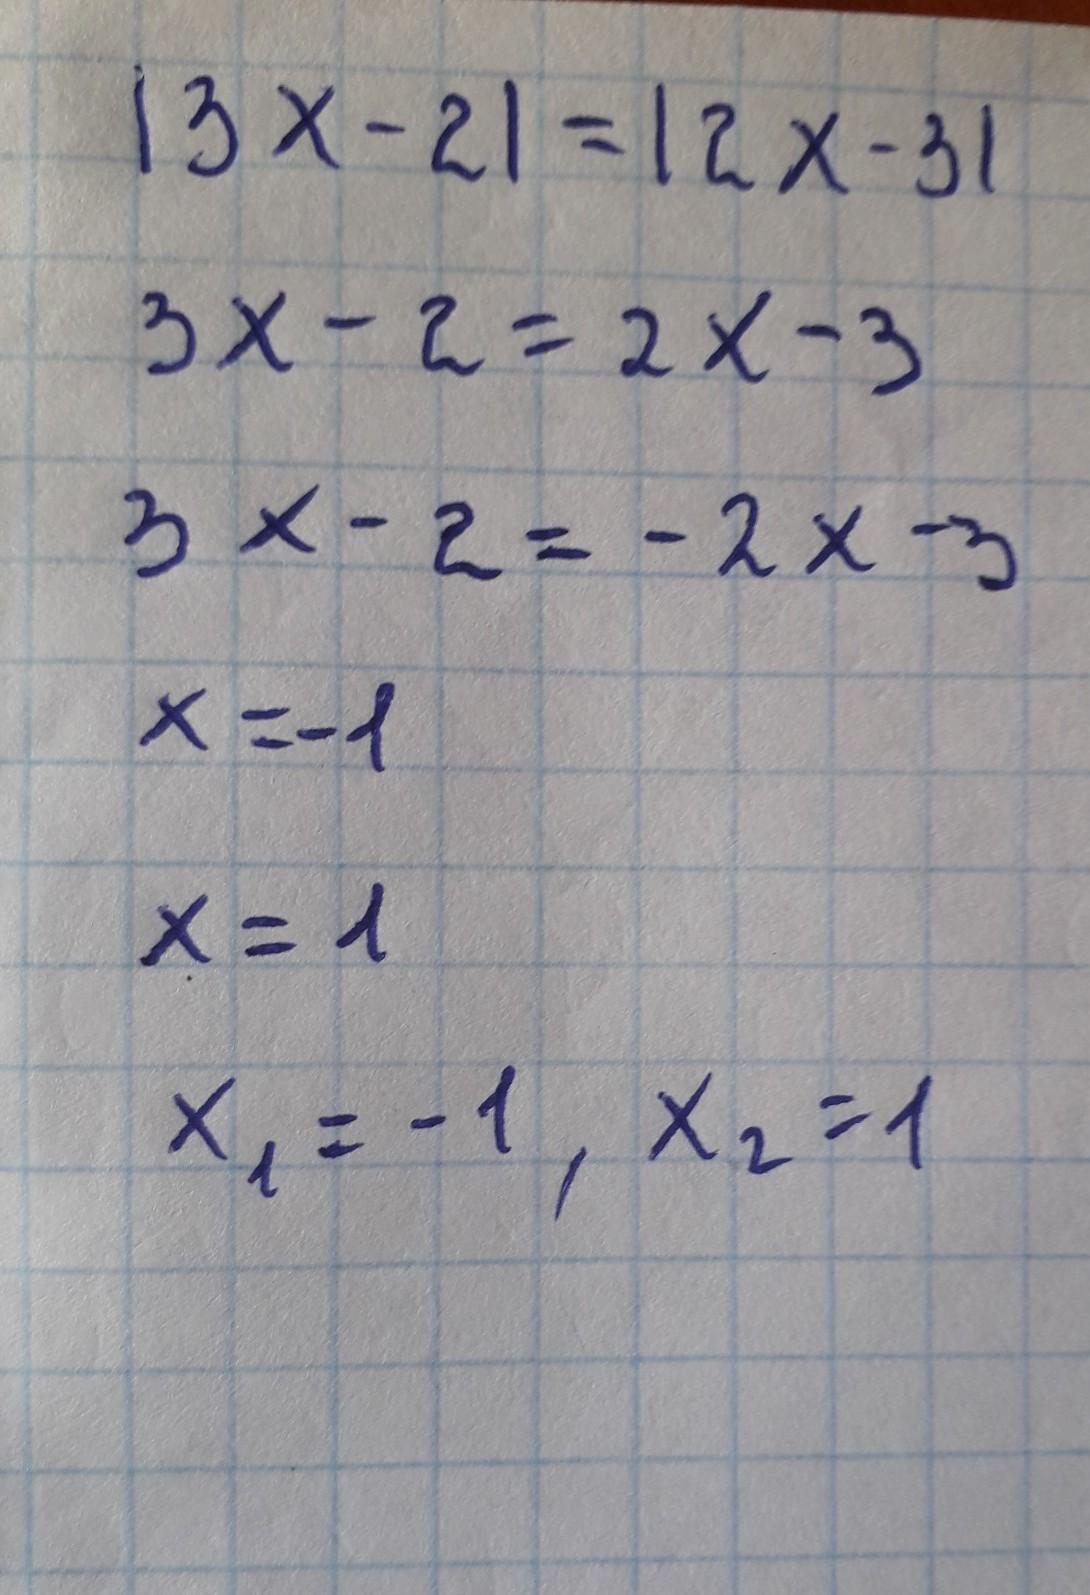 |3x-2|=|2x-3|
3x-2=2x-3
3x-2=-2x-3
x=-1
x=1
x₁=-1, x₂=1